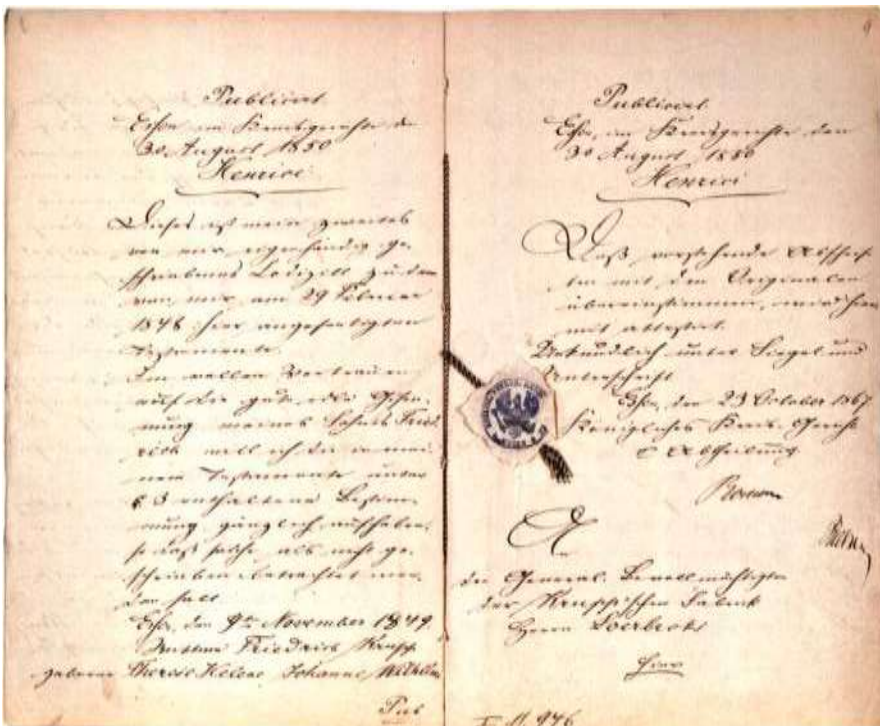 Publicirt
Essen im Kreisgerichte den
30. August 1850
Henrici
Dieses ist mein zweites
von mir eigenhändig ge-
schriebenes Codizill zu dem
von mir am 29 Februar
1848 hier angefertigten
Testamente.
Im vollen Vertrauen
auf die gute, edle Gesin-
nung meines Sohnes Fried-
rich will ich die in mei-
nem Testamente unter
§ 3 enthaltene Bestim-
mung gänzlich aufheben,
so daß solche als nicht ge-
schrieben betrachtet wer-
den soll
Essen, den 9ten November 1849.
Wittwe Friedrich Krupp
geborene Therese Helene Johanne Wilhelmi
Pub
Publicirt.
Essen, im Kreisgerichte den
30 August 1850
Henrici
Daß vorstehende Abschrif-
ten mit den Originalen
übereinstimmen, wird hier-
mit attestirt.
Urkundlich unter Siegel und
Unterschrift
Essen, den 23 October 1867
Königliches Kreis-Gericht
Abtheilung
An
den General-Bevollmächtigten
der Krupp'schen Fabrik
Herrn
Hier
946